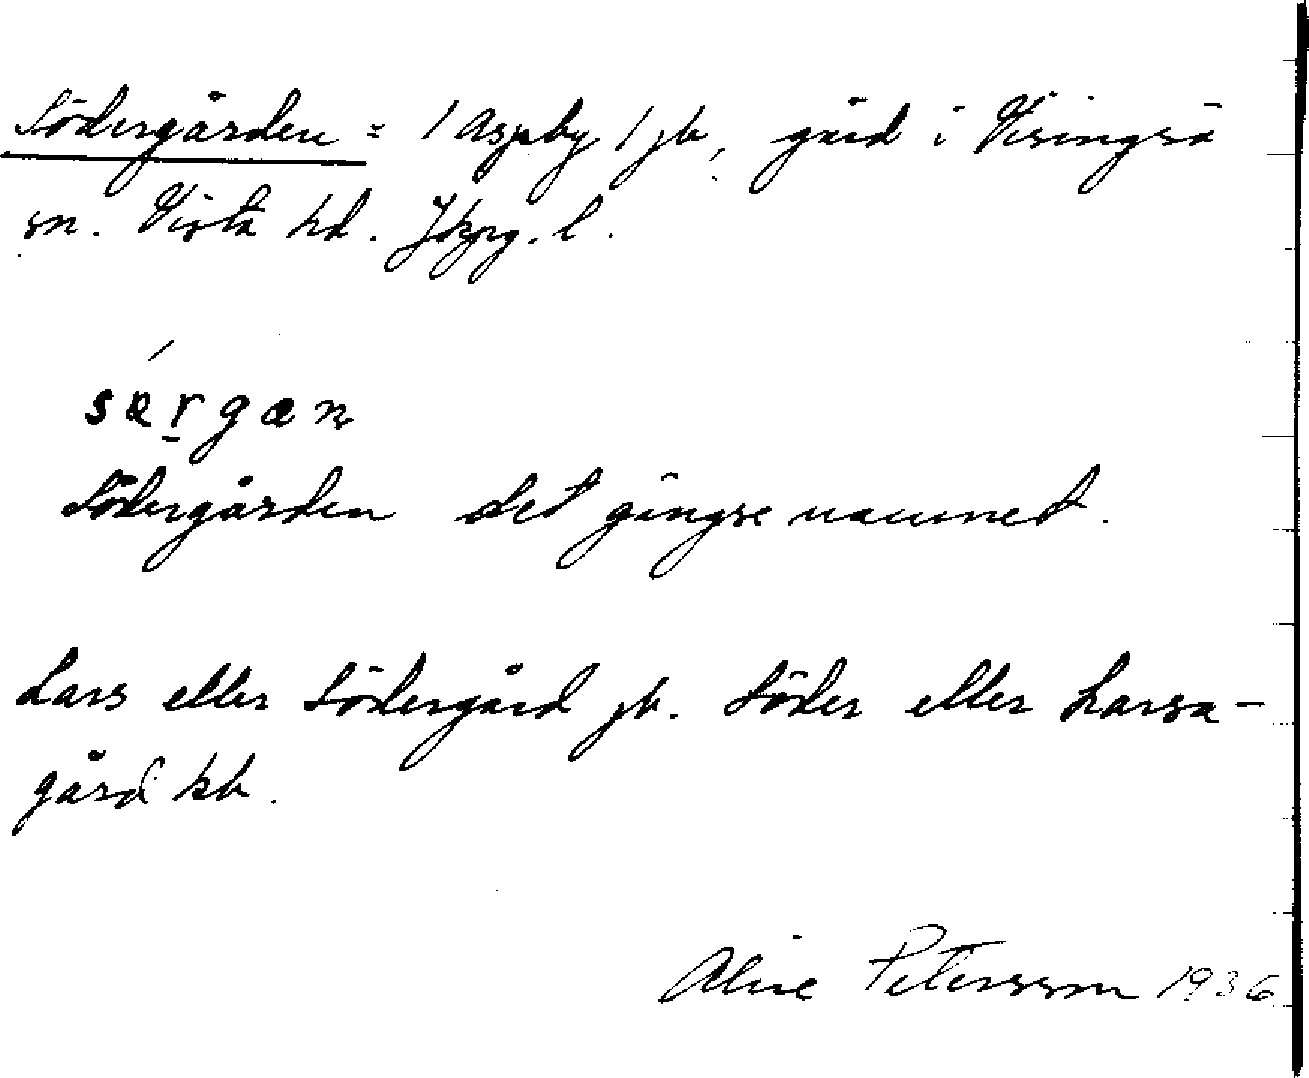 Södergården = 1 Aspby 1 jb, gård i Visingsö
sn. Vista hd. Jkpg. l.
særgæn
Södergården det gängse namnet.
Lars eller Södergård jb. Söder eller Larsa-
gård kb.
Aline Petersson 1936